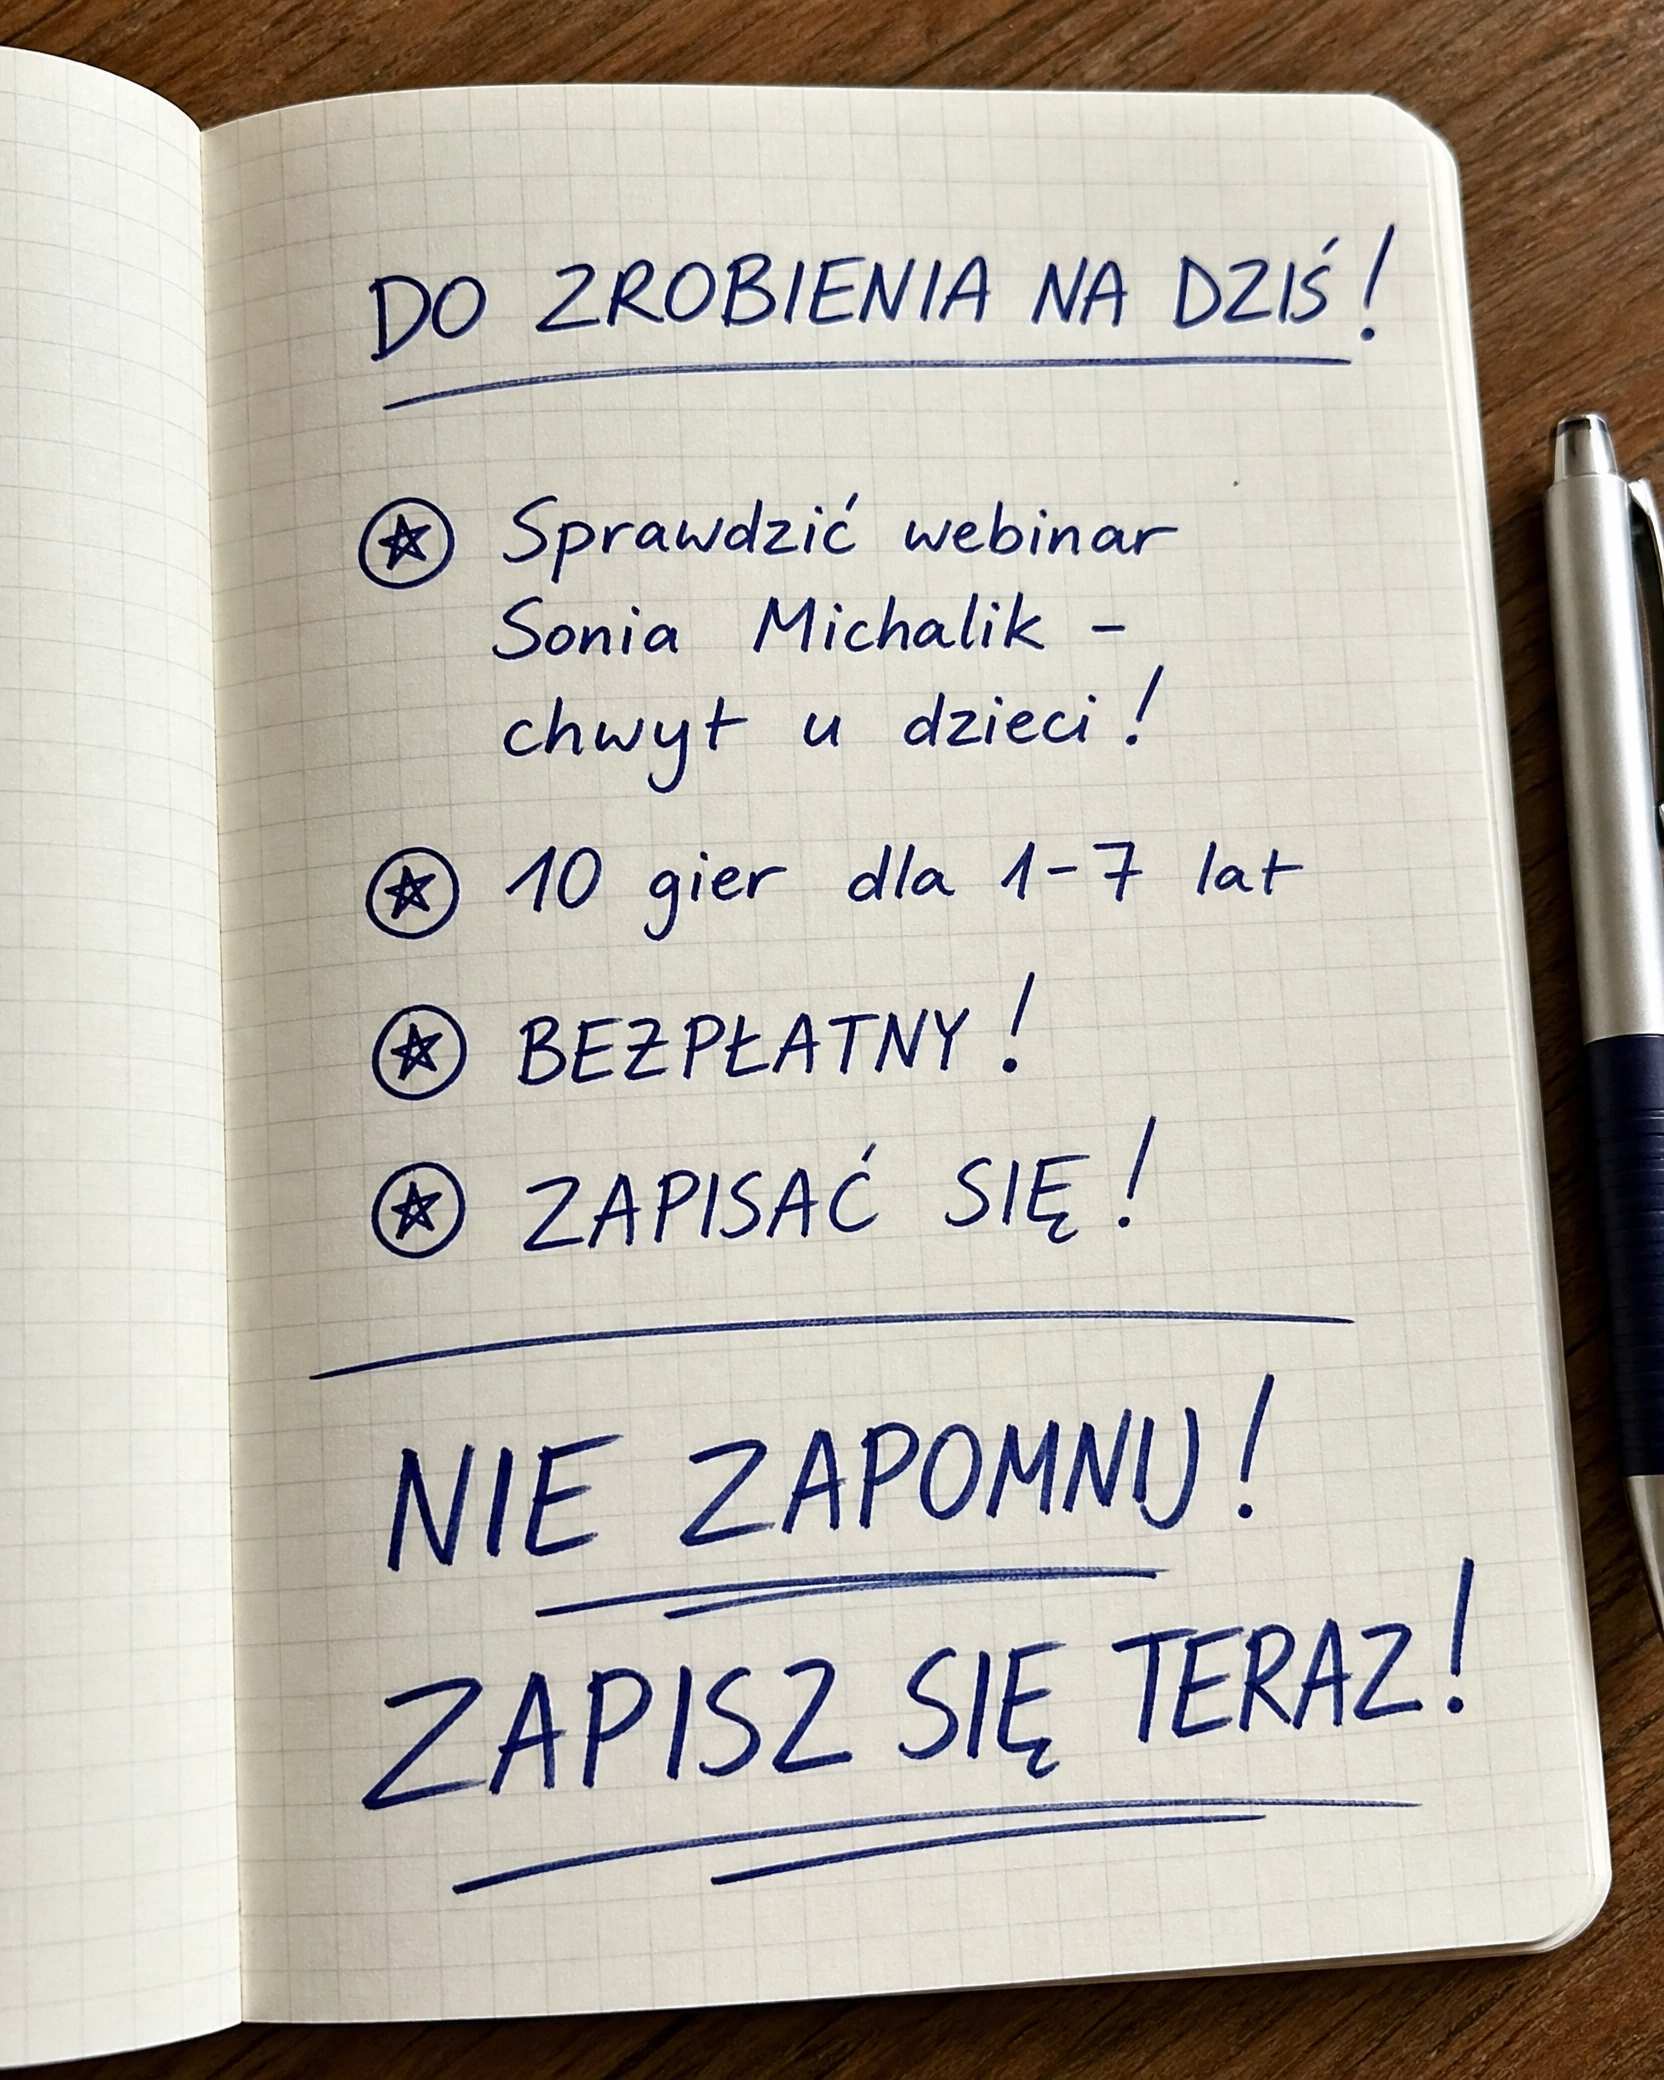 DO ZROBIENIA NA DZIŚ!
Sprawdzić webinar
Sonia Michalik -
chwyt u dzieci!
10 gier dla 1-7 lat
BEZPŁATNY!
ZAPISAĆ SIĘ!
NIE ZAPOMNIJ!
ZAPISZ SIĘ TERAZ!